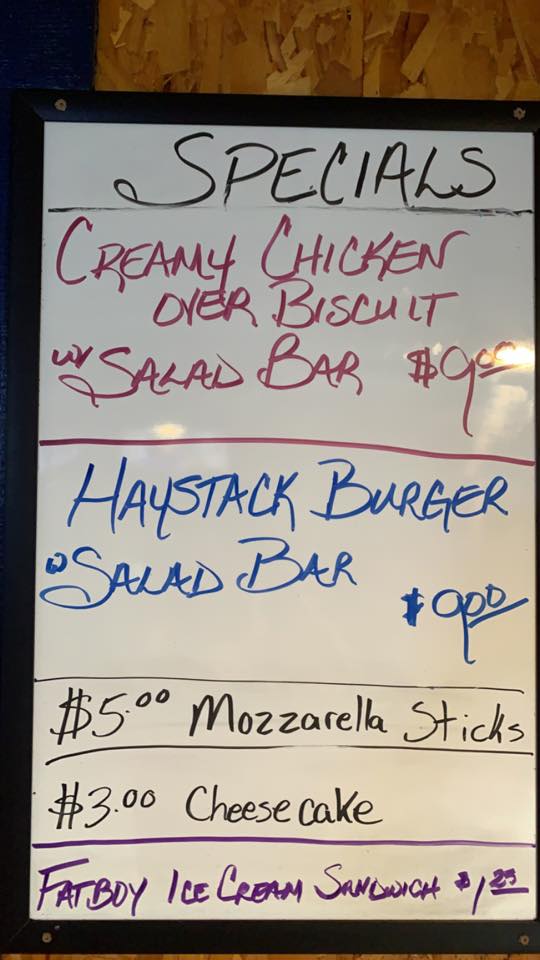 SPECIALS
CREAMY CHICKEN
OVER BISCUIT
w/ SALAD BAR $9.00
HAYSTACK BURGER
w SALAD BAR
$9.00
$5.00 Mozzarella Sticks
$3.00 Cheesecake
FATBOY ICE CREAM SANDWICH $1.25